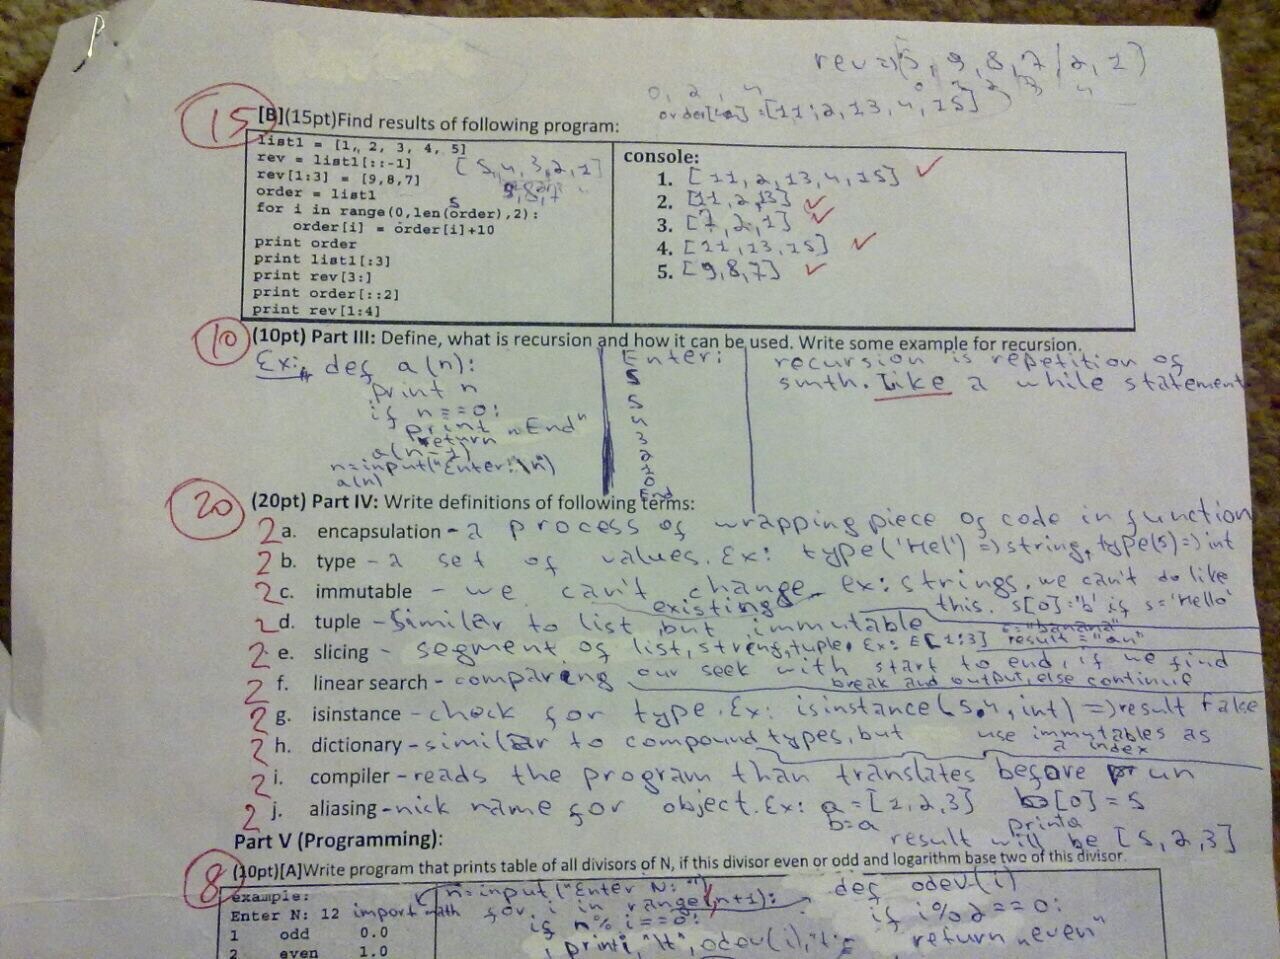 rev=[5, 9, 8, 7, 2, 1]
0, 2, 4
=[11,2,13,4,15]
15
[B](15pt)Find results of following program:
list1 = [1, 2, 3, 4, 5]
rev = list1[::-1] [5,4,3,2,1]
rev[1:3] = [9,8,7] 9,8,7
order = list1
5
for i in range(0,len(order),2):
order[i] = order[i]+10
print order
print list1[:3]
print rev[3:]
print order[::2]
print rev[1:4]
console:
1. [11,2,13,4,15]
2. [11,2,13]
3. [7,2,1]
4. [11,13,15]
5. [9,8,7]
10
(10pt) Part III: Define, what is recursion and how it can be used. Write some example for recursion.
Ex: def a(n):
print n
if n==0:
print "End"
return
a(n-1)
n=input("Enter:\n")
a(n)
Enter:
5
5
4
3
2
1
0
End
recursion is repetition of
smth. Like a while statement
20
(20pt) Part IV: Write definitions of following terms:
2 a. encapsulation - a process of wrapping piece of code in function
2 b. type - a set of values. Ex: type('Hel') => string, type(5) => int
2 c. immutable - we can't change existing. ex: strings. we can't do like
this. s[0]='b' if s='Hello'
2 d. tuple - similar to list but immutable
="banana"
2 e. slicing - segment of list, string, tuple. Ex: [1:3] result = "an"
2 f. linear search - comparing our seek with start to end, if we find
break and output, else continue
2 g. isinstance - check for type. Ex: isinstance(5.4, int) => result False
2 h. dictionary - similar to compound types, but use immutables as
a index
2 i. compiler - reads the program than translates before run
2 j. aliasing - nick name for object. Ex: a = [1,2,3] b[0] = 5
b=a print a
result will be [5,2,3]
Part V (Programming):
8
(10pt)[A]Write program that prints table of all divisors of N, if this divisor even or odd and logarithm base two of this divisor.
example:
Enter N: 12
1 odd 0.0
2 even 1.0
import math
n=input("Enter N: ")
for i in range(,n+1):
if n%i==0:
print i,"\t",odev(i),"\t
def odev(i)
if i%2==0:
return "even"